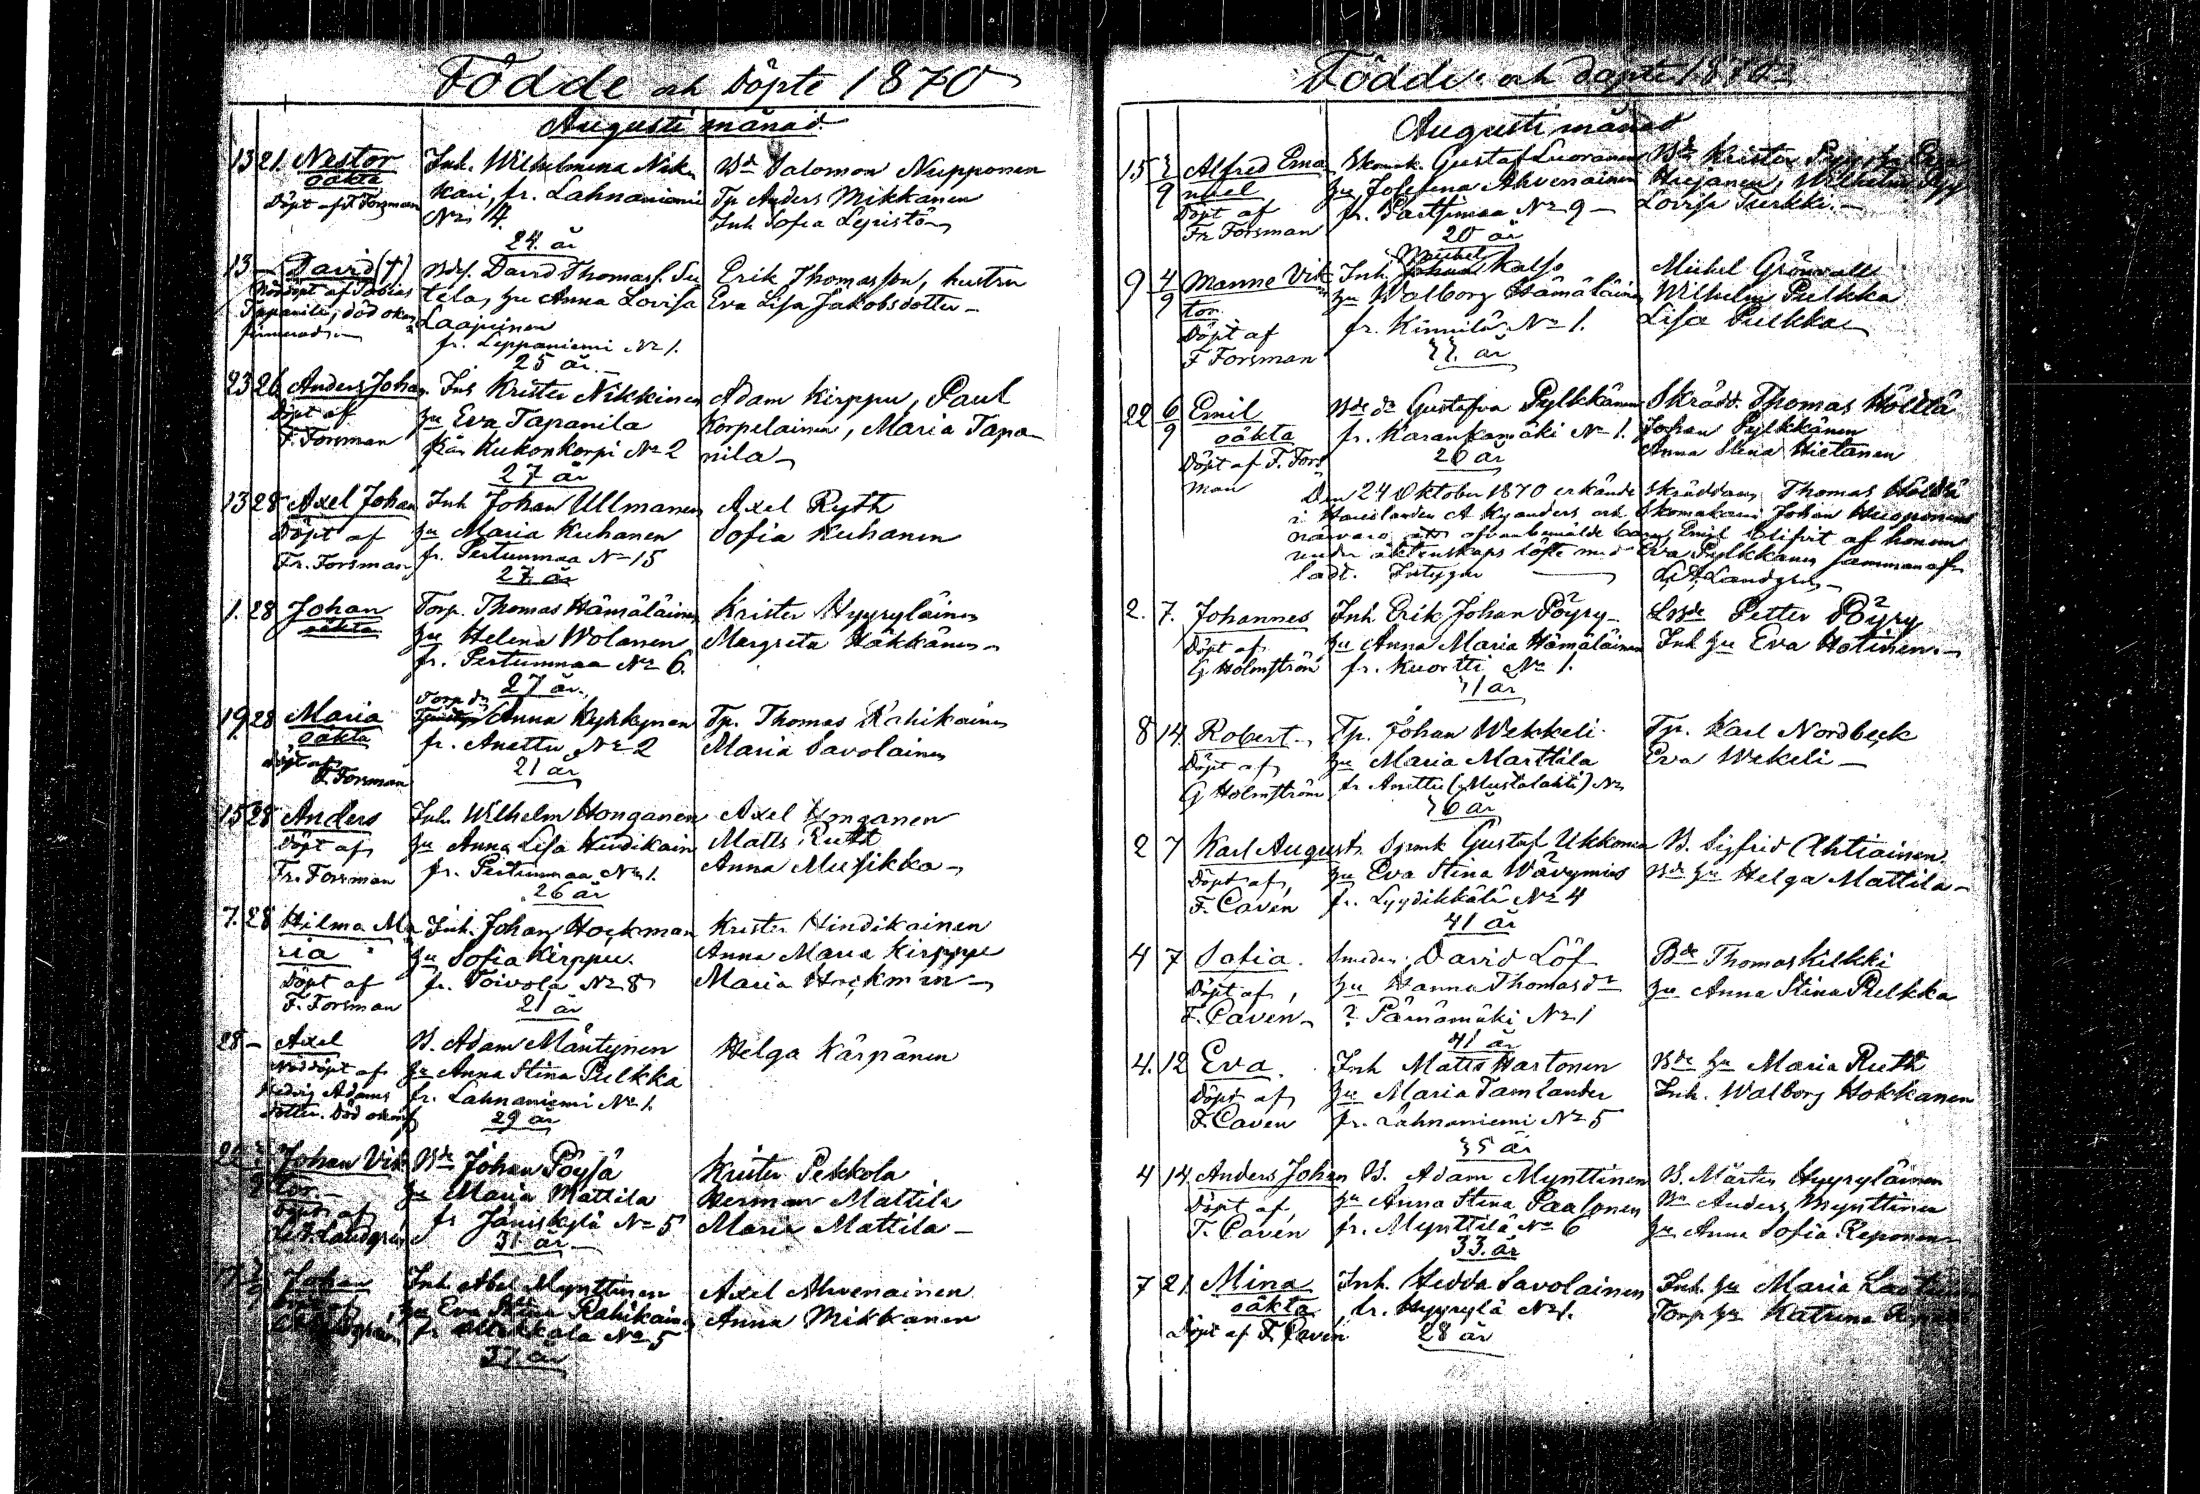 Födde och Döpte 1870
Augusti månad
13 21 Nestor Inh. Wilhelmina Nik Bd Salomon Nupponen
oäkta kari, fr. Lahnaniemi Tp Anders Mikkanen
Döpt af F Forsman No 4. Inh Sofia
24 år
13 — David (†) Bds. David Thomass. Su Erik Thomasson, hustru
Nöddöpt af Tobias tela, hu Anna Lovisa Eva Lisa Jakobsdotter —
Tapanila, död Laajuinen
fr. Leppaniemi No 1.
25 år
23 26 Anders Johan Inh Krister Nikkinen Adam Kirppu, Paul
Döpt af hu Eva Tapanila Korpelainen, Maria Tapa
F. Forsman från Kukonkorpi No 2 nila —
27 år
13 28 Axel Johan Inh Johan Ullmanen Axel Ryth
Döpt af hu Maria Kuhanen Sofia Kuhanen
Fr. Forsman fr. Pertunmaa No 15
27 år
1. 28 Johan Torp. Thomas Hämäläinen Krister Hyyryläinen
oäkta hu Helena Wolanen Margreta Häkkänen —
fr. Pertunmaa No 6.
27 år.
Torp dr
19 28 Maria Anna Kyrkynen Tp. Thomas Rahikainen
oäkta fr. Anattu No 2 Maria Savolainen
Döpt af 21 år
F. Forsman
15 28 Anders Inh Wilhelm Honganen Axel Honganen
Döpt af hu Anna Lisa Hindikain Matts Ruth
Fr. Forsman fr. Pertunmaa No 1. Anna Musikka —
26 år
7. 28 Hilma Ma Inh. Johan Hockman Krister Hindikainen
ria hu Sofia Kirppu. Anna Maria Kirppu
Döpt af fr. Toivola No 8 Maria Hockman —
F. Forsman 21 år
28 — Axel B. Adam Mäntynen Helga Kärpänen
Nöddöpt af hu Anna Stina Pulkka
Hedvig Adams fr. Lahnaniemi No 1.
dotter. Död 29 år
Johan Vik Bde Johan Pöysä Krister Pekkola
tor — hu Maria Mattila Herman Mattila
Döpt af fr Jäniskylä No 5 Maria Mattila —
Landgren 31 år —
Johan Inh Abel Mynttinen Axel Ahvenainen
hu Eva Stina Rahikainen Anna Mikkanen
fr Mikkala No 5
37 år
Födde och döpte 1870
Augusti månad
15 2/9 Alfred Ema Skomak. Gustaf Luoranen Bde Krister
nuel hu Josefina Ahvenainen Wilhelm
Döpt af fr. Parttimaa No 9 — Lovisa Turkki. —
Fr Forsman 20 år
Michel
9 4/9 Manne Vik Inh Kalso Michel Grönvall
tor. hu Walborg Hämäläinen Wilhelm Pulkka
Döpt af fr. Kinnilä No 1. Lisa Pulkka —
F Forsman 22. år
22 6/9 Emil Bde dr Gustafva Pylkkänen Skrädd. Thomas Hölttä
oäkta fr. Karankamäki No 1. Johan Pylkkänen
Döpt af F. Fors 26 år Anna Stina Hietanen
man
Den 24 Oktober 1870 erkände skräddaren Thomas Hölttä
i Handlanden A Kyanders och Skomakaren Johan
närvaro att ofvanbemälde barn, Emil blifvit af honom
under äktenskaps löfte med Eva Pylkkänen samman af
ladt. Intygar — Landgren —
2. 7. Johannes Inh Erik Johan Pöyry — Petter Pöyry
Döpt af hu Anna Maria Hämäläinen Inh hu Eva Hotinen. —
G Holmström fr. Kuortti No 1.
31 år
8 14. Robert — Tp. Johan Wekkeli. Tp. Karl Nordbeck
Döpt af hu Maria Marttila Eva Wekeli —
G Holmström fr Anettu (Mustalahti) No
36 år
2 7 Karl August. Gustaf Ukkonen B. Sigfrid Ahtiainen.
Döpt af hu Eva Stina Wäyrynen Bde hu Helga Mattila —
F. Caven fr. Lyydikkälä No 4
41 år
4 7 Sofia. Smeden David Löf Bde Thomas Kilkki
Döpt af hu Hanna Thomasdr hu Anna Stina Pulkka
F. Caven — ? Pärnämäki No 1
41 år
4. 12 Eva. Inh Matts Hartonen Bde hu Maria Ruth
Döpt af hu Maria Tamlander Inh. Walborg Hokkanen
F. Caven fr. Lahnaniemi No 5
35 år
4 14 Anders Johan B. Adam Mynttinen B. Mårten Hyyryläinen
Döpt af hu Anna Stina Paalonen Bn Anders Mynttinen
F. Caven fr. Mynttilä No 6 hu Anna Sofia Reponen
33. år
7 21 Mina Inh. Hedda Savolainen Inh. hu Maria
oäkta fr. Hyyrylä No 1. Torp hu Katrina
Döpt af F. Caven 28 år